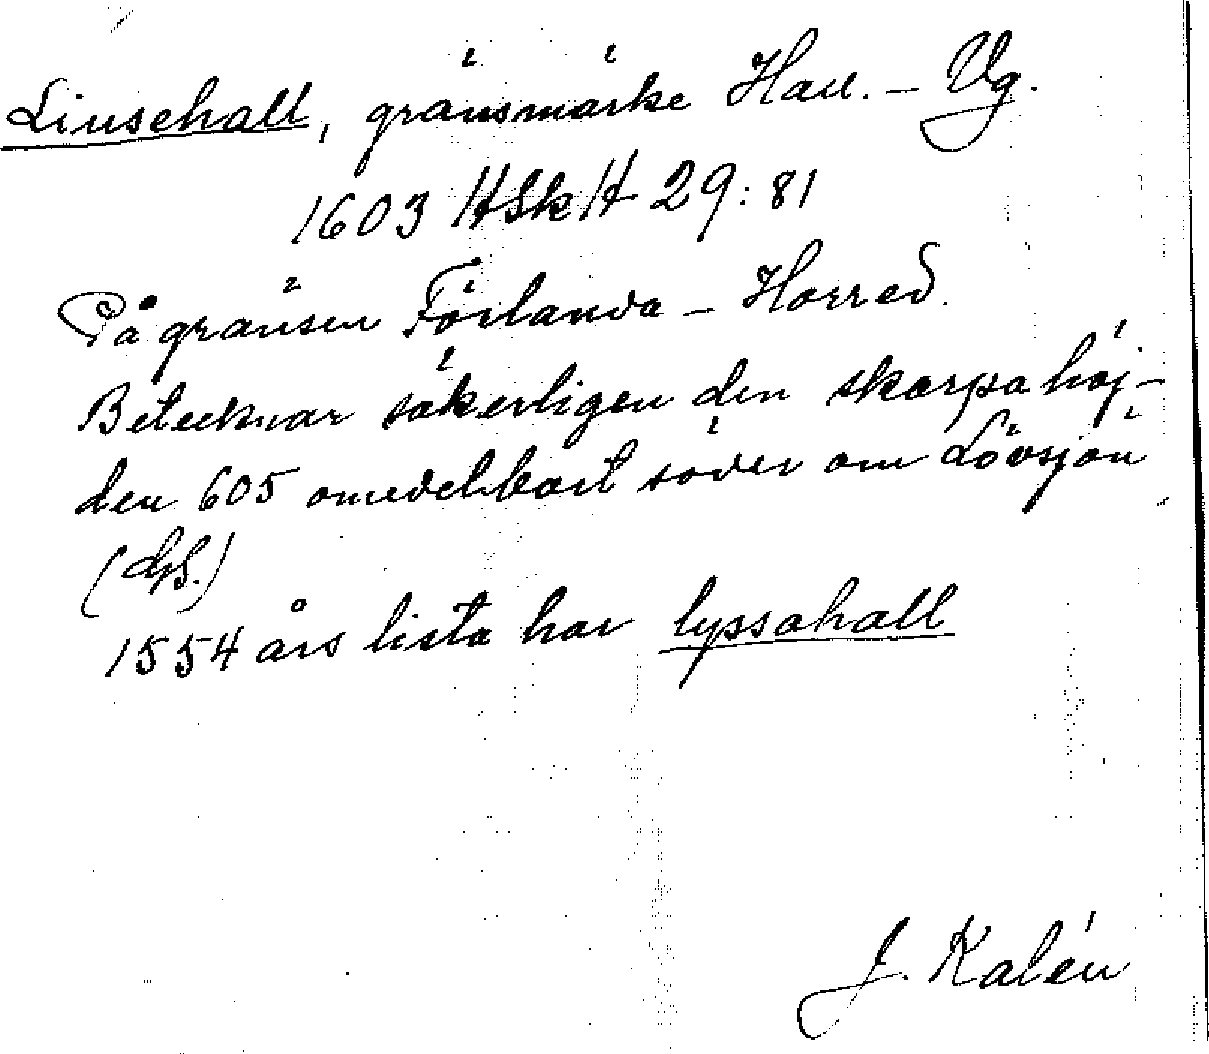 Liusehall, gränsmärke Hall. – Vg.
1603 HSkH 29:81
På gränsen Förlanda – Horred.
Betecknar säkerligen den skarpa höj-
den 605 omedelbart söder om Lövsjön
1554 års lista har lyssahall
J. Kalén